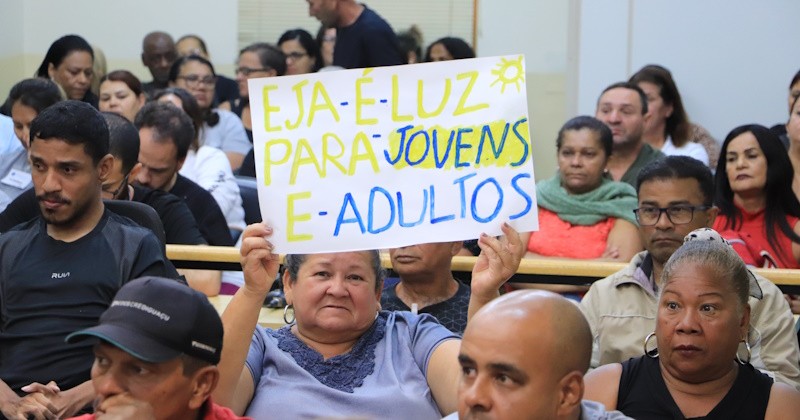 EJA-É-LUZ
PARA-JOVENS
E-ADULTOS
RUVI